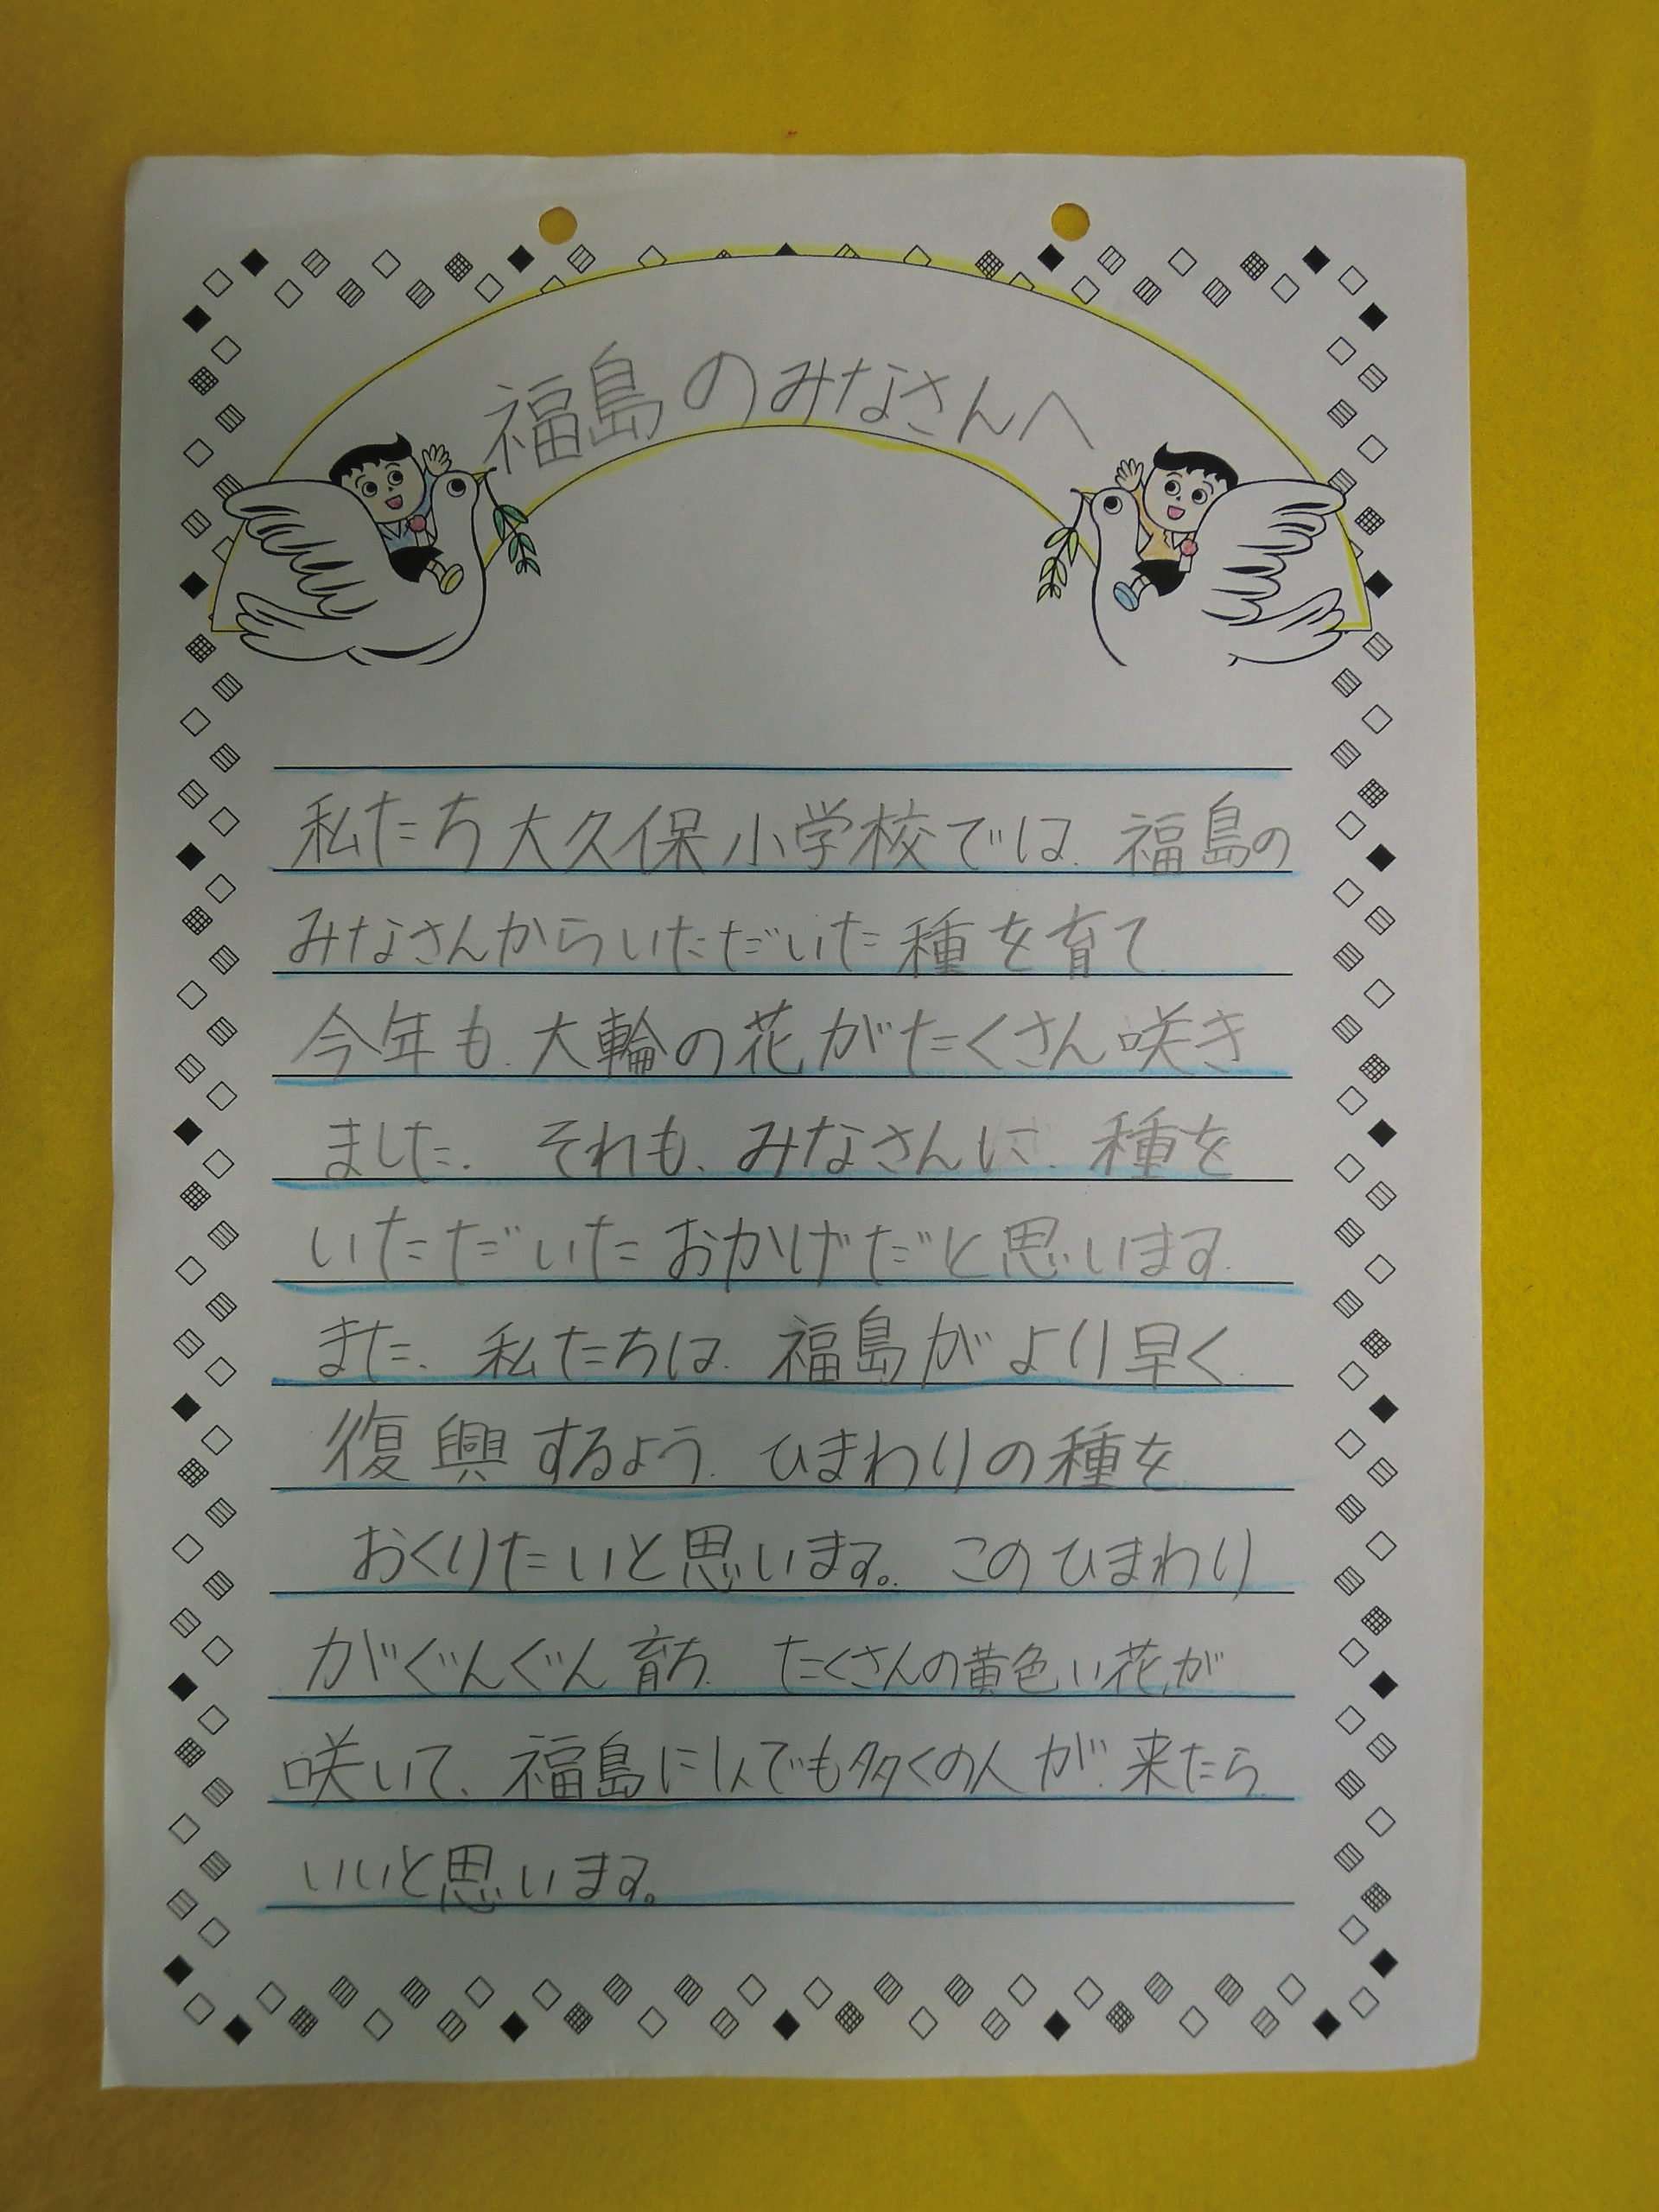 福島のみなさんへ
私たち大久保小学校では、福島の
みなさんからいただいた種を育て、
今年も、大輪の花がたくさん咲き
ました。それも、みなさんに、種を
いただいたおかげだと思います。
また、私たちは、福島がより早く、
復興するよう、ひまわりの種を
おくりたいと思います。このひまわり
がぐんぐん育ち、たくさんの黄色い花が
咲いて、福島に1人でも多くの人が、来たら、
いいと思います。